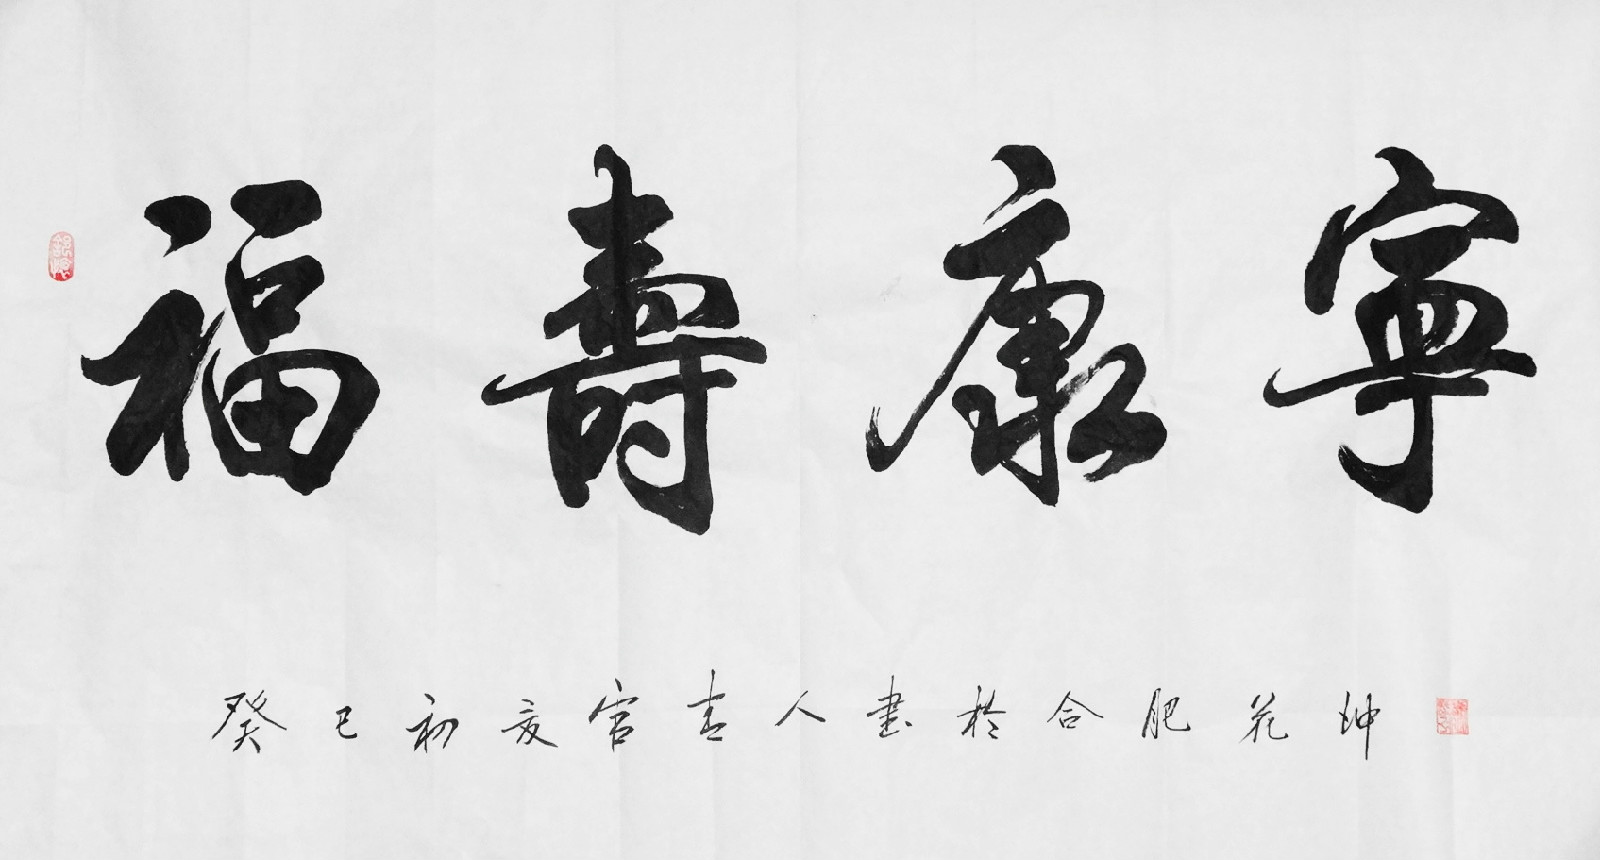 福壽康寧
癸巳初夏官吉人書於合肥花坤